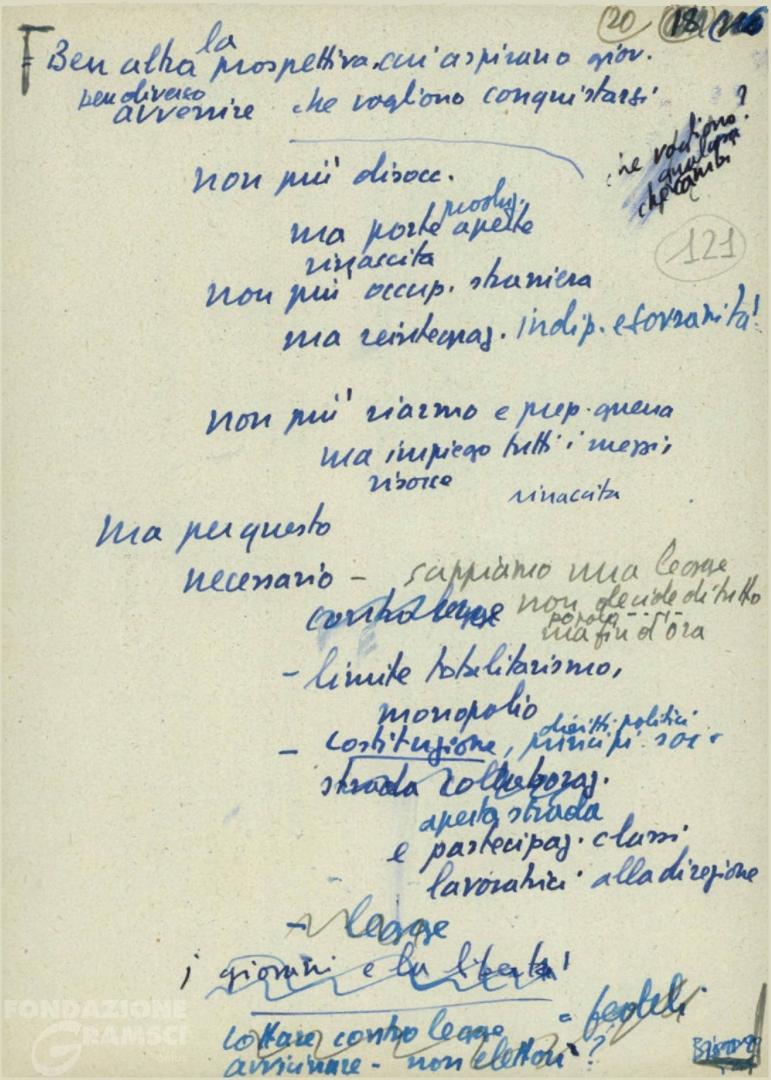 20 18
la
Ben altra prospettiva cui aspirano giov.
ben diverso
avvenire che vogliono conquistarsi
che vogliono?
qualcosa
che cambi
non più disocc.
produz.
ma porte aperte
rinascita
121
non più occup. straniera
ma reintegraz. indip. e sovranità
non più riarmo e prep. guerra
ma impiego tutti i mezzi,
risorse rinascita
Ma per questo
necessario - sappiamo una legge
contro legge non decide di tutto
popolo
ma fin d'ora
- limite totalitarismo,
monopolio
diritti politici
- Costituzione, principi soc.
strada collaboraz.
aperta strada
e partecipaz. classi
lavoratrici alla direzione
- legge
i giovani e la libertà
lottare contro legge = fedeli
avvicinare - non elettori ?
FONDAZIONE
GRAMSCI